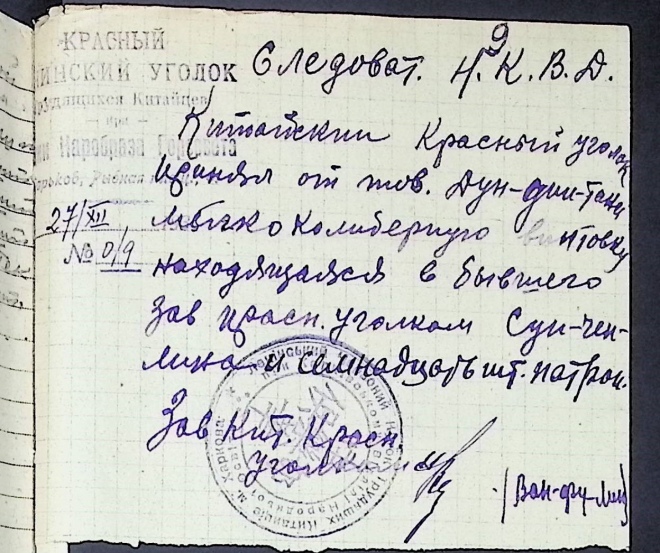 КРАСНЫЙ
ИНСКИЙ УГОЛОК
рудящихся Китайцев
при
Наробраза Горсовета
Рыбная
27/XII
№ 0/9
Следоват. Н.К.В.Д.
Китайский Красный уголок
принял от тов. Дун-фин-тана
мелкокалиберную винтовку
находящаяся в бывшего
Зав красн. уголком Сун-чен-
лина и семнадцать шт. патрон.
Зав Кит. Красн.
Уголком
(Ван-фу-лин)